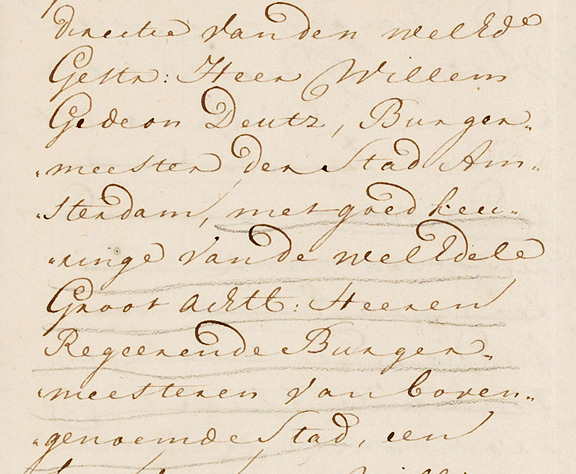 directie van den welEde
Gestr: Heer Willem
Gedeon Deutz, Burger„
„meester der Stad Am„
„sterdam, met goedkeu„
„ringe van de welEdele
Groot achtb: Heeren
Regeerende Burger„
„meesteren van boven„
„genoemde Stad, een